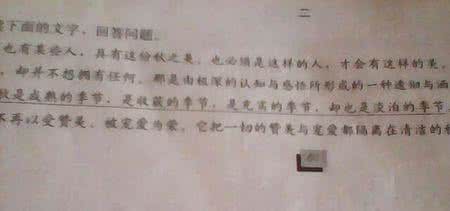 二
下面的文字，回答问题。
也有某些人，具有这份秋之美。也必须是这样的人，才会有这样的美。
，却并不想拥有任何。那是由极深的认知与感悟所形成的一种透彻与洒
秋是成熟的季节，是收获的季节，是充实的季节，却也是淡泊的季节
不再以受赞美、被宠爱为荣。它把一切的赞美与宠爱都隔离在清洁的